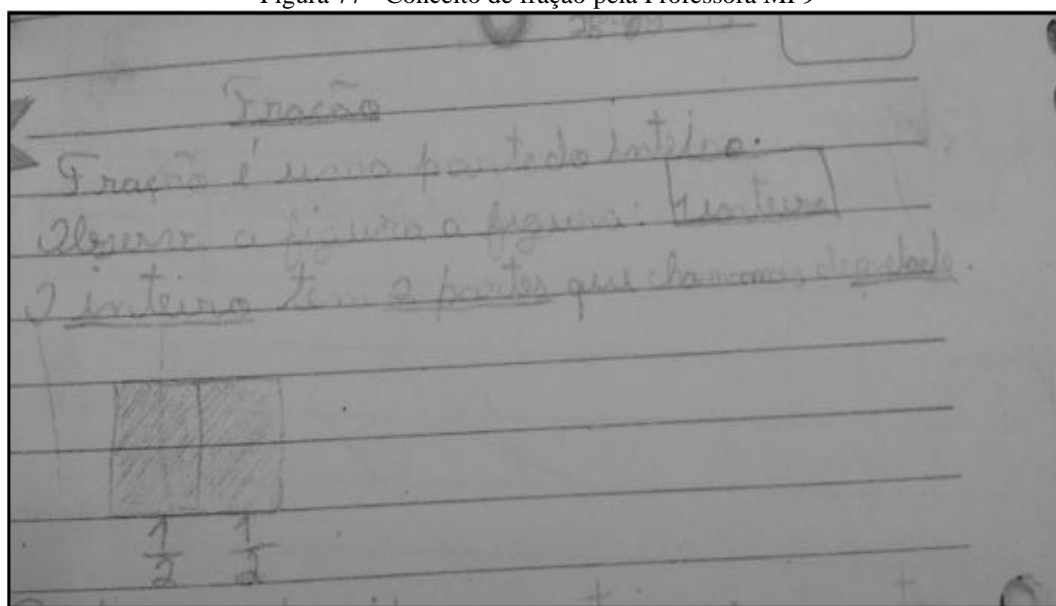 Figura 77 - Conceito de fração pela Professora MP9
Fração
Fração é uma parte do inteiro.
Observe a figura a figura: 1 inteiro
O inteiro tem 2 partes que chamamos de metade.
1 1
2 2